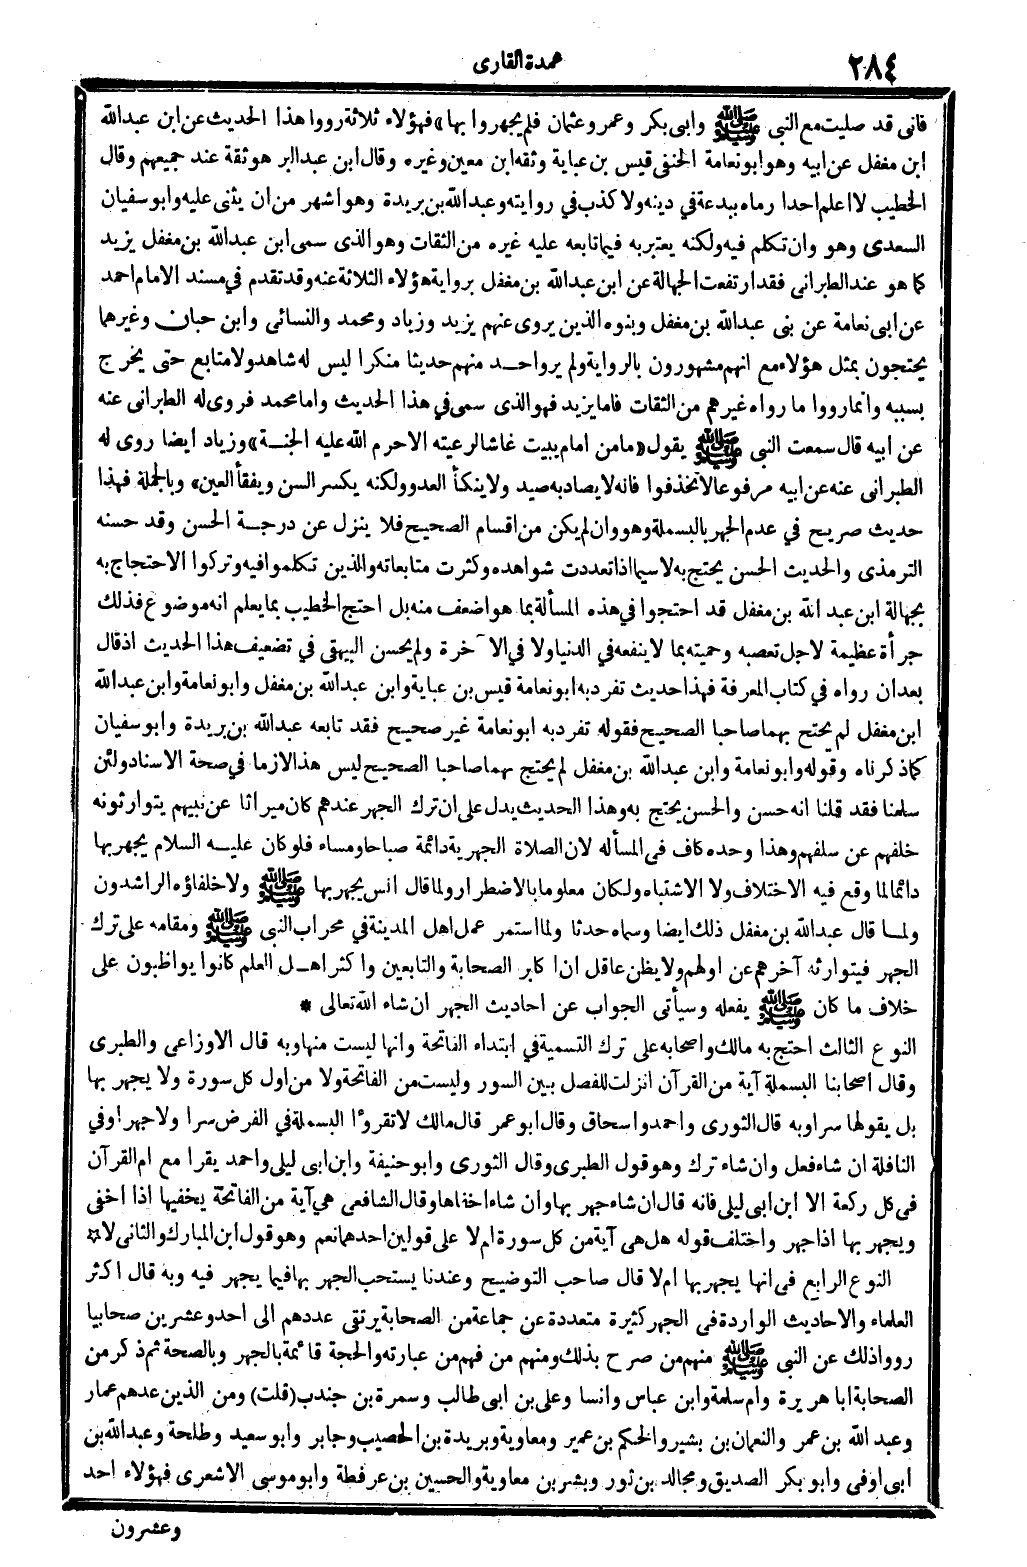 ٢٨٤
عمدة القارى
فانى قد صليت مع النبى ﷺ وابى بكر وعمر وعثمان فلم يجهروا بها» فهؤلاء ثلاثة رووا هذا الحديث عن ابن عبدالله
ابن مغفل عن ابيه وهو ابو نعامة الحنفى قيس بن عباية وثقه ابن معين وغيره وقال ابن عبدالبر هو ثقة عند جميعهم وقال
الخطيب لا اعلم احدا رماه ببدعة في دينه ولا كذب في روايته وعبدالله بن بريدة وهو اشهر من ان يثنى عليه وابو سفيان
السعدى وهو وان تكلم فيه ولكنه يعتبر به فيما تابعه عليه غيره من الثقات وهو الذى سمى ابن عبدالله بن مغفل يزيد
كما هو عند الطبرانى فقد ارتفعت الجهالة عن ابن عبدالله بن مغفل برواية هؤلاء الثلاثة عنه وقد تقدم في مسند الامام احمد
عن ابى نعامة عن بنى عبدالله بن مغفل وبنوه الذين يروى عنهم يزيد وزياد ومحمد والنسائى وابن حبان وغيرهما
يحتجون بمثل هؤلاء مع انهم مشهورون بالرواية ولم يرو احد منهم حديثا منكرا ليس له شاهد ولا متابع حتى يخرج
بسببه وانما رووا ما رواه غيرهم من الثقات فاما يزيد فهو الذى سمى في هذا الحديث واما محمد فروى له الطبرانى عنه
عن ابيه قال سمعت النبى ﷺ يقول «ما من امام يبيت غاشا لرعيته الا حرم الله عليه الجنة» وزياد ايضا روى له
الطبرانى عنه عن ابيه مرفوعا لا تخذفوا فانه لا يصاد به صيد ولا ينكأ العدو ولكنه يكسر السن ويفقأ العين» وبالجملة فهذا
حديث صريح في عدم الجهر بالبسملة وهو وان لم يكن من اقسام الصحيح فلا ينزل عن درجة الحسن وقد حسنه
الترمذى والحديث الحسن يحتج به لاسيما اذا تعددت شواهده وكثرت متابعاته والذين تكلموا فيه وتركوا الاحتجاج به
بجهالة ابن عبد الله بن مغفل قد احتجوا في هذه المسألة بما هو اضعف منه بل احتج الخطيب بما يعلم انه موضوع فذلك
جرأة عظيمة لاجل تعصبه وحميته بما لا ينفعه في الدنيا ولا في الآخرة ولم يحسن البيهقى في تضعيف هذا الحديث اذ قال
بعد ان رواه في كتاب المعرفة فهذا حديث تفرد به ابو نعامة قيس بن عباية وابن عبدالله بن مغفل وابو نعامة وابن عبدالله
ابن مغفل لم يحتج بهما صاحبا الصحيح فقوله تفرد به ابو نعامة غير صحيح فقد تابعه عبدالله بن بريدة وابو سفيان
كما ذكرناه وقوله وابو نعامة وابن عبدالله بن مغفل لم يحتج بهما صاحبا الصحيح ليس هذا لازما في صحة الاسناد ولئن
سلمنا فقد قلنا انه حسن والحسن يحتج به وهذا الحديث يدل على ان ترك الجهر عندهم كان ميراثا عن نبيهم يتوارثونه
خلفهم عن سلفهم وهذا وحده كاف فى المسأله لان الصلاة الجهرية دائمة صباحا ومساء فلو كان عليه السلام يجهر بها
دائما لما وقع فيه الاختلاف ولا الاشتباه ولكان معلوما بالاضطرار ولما قال انس يجهر بها ﷺ ولا خلفاؤه الراشدون
ولما قال عبدالله بن مغفل ذلك ايضا وسماه حدثا ولما استمر عمل اهل المدينة في محراب النبى ﷺ ومقامه على ترك
الجهر فيتوارثه آخرهم عن اولهم ولا يظن عاقل ان اكابر الصحابة والتابعين واكثر اهل العلم كانوا يواظبون على
خلاف ما كان ﷺ يفعله وسيأتى الجواب عن احاديث الجهر ان شاء الله تعالى *
النوع الثالث احتج به مالك واصحابه على ترك التسمية في ابتداء الفاتحة وانها ليست منها وبه قال الاوزاعى والطبرى
وقال اصحابنا البسملة آية من القرآن انزلت للفصل بين السور وليست من الفاتحة ولا من اول كل سورة ولا يجهر بها
بل يقولها سرا وبه قال الثورى واحمد واسحاق وقال ابو عمر قال مالك لا تقرؤا البسملة في الفرض سرا ولا جهرا وفي
النافلة ان شاء فعل وان شاء ترك وهو قول الطبرى وقال الثورى وابو حنيفة وابن ابى ليلى واحمد يقرا مع ام القرآن
فى كل ركعة الا ابن ابى ليلى فانه قال ان شاء جهر بها وان شاء اخفاها وقال الشافعى هي آية من الفاتحة يخفيها اذا اخفى
ويجهر بها اذا جهر واختلف قوله هل هى آية من كل سورة ام لا على قولين احدهما نعم وهو قول ابن المبارك والثانى لا *
النوع الرابع فى انها يجهر بها ام لا قال صاحب التوضيح وعندنا يستحب الجهر بها فيما يجهر فيه وبه قال اكثر
العلماء والاحاديث الواردة فى الجهر كثيرة متعددة عن جماعة من الصحابة يرتقى عددهم الى احد وعشرين صحابيا
رووا ذلك عن النبى ﷺ منهم من صرح بذلك ومنهم من فهم من عبارته والحجة قائمة بالجهر وبالصحة ثم ذكر من
الصحابة ابا هريرة وام سلمة وابن عباس وانسا وعلى بن ابى طالب وسمرة بن جندب (قلت) ومن الذين عدهم عمار
وعبد الله بن عمر والنعمان بن بشير والحكم بن عمير ومعاوية وبريدة بن الحصيب وجابر وابو سعيد وطلحة وعبدالله بن
ابى اوفى وابو بكر الصديق ومجالد بن ثور وبشر بن معاوية والحسين بن عرفطة وابو موسى الاشعرى فهؤلاء احد
وعشرون